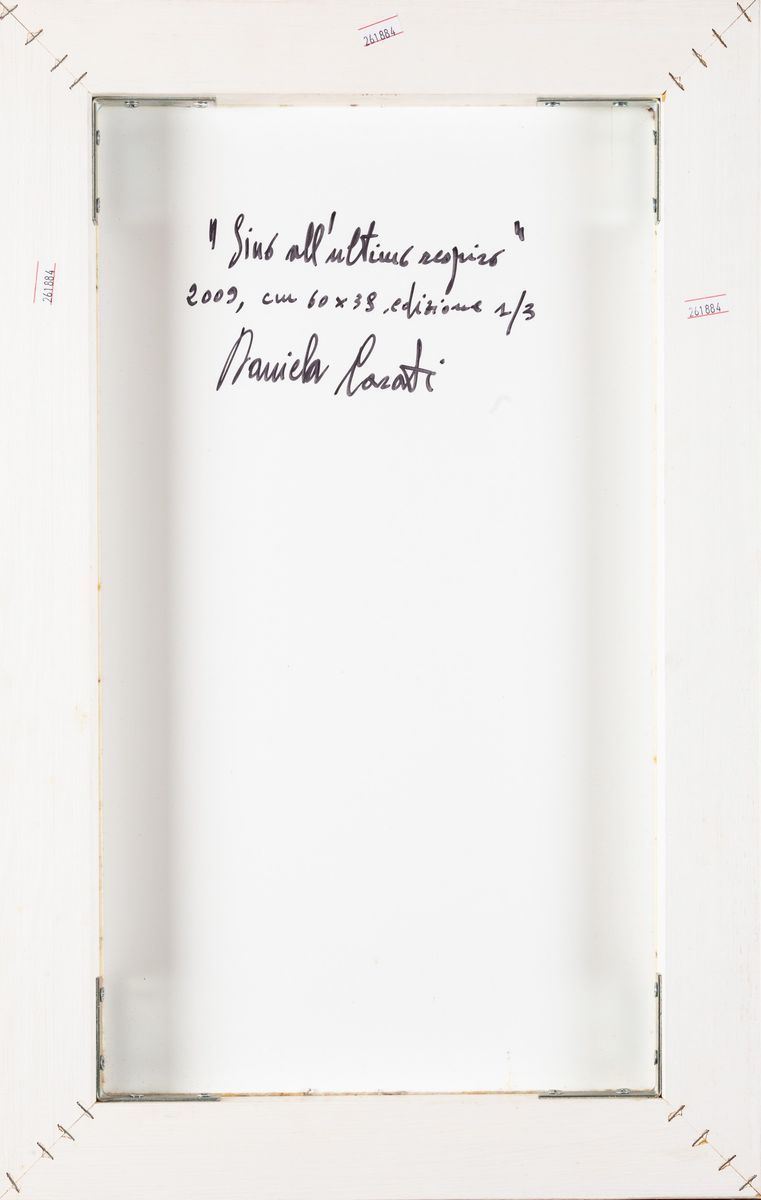 261884
"Sino all'ultimo respiro"
2009, cm 60 x 38, edizione 1/3
Daniela
261884
261884